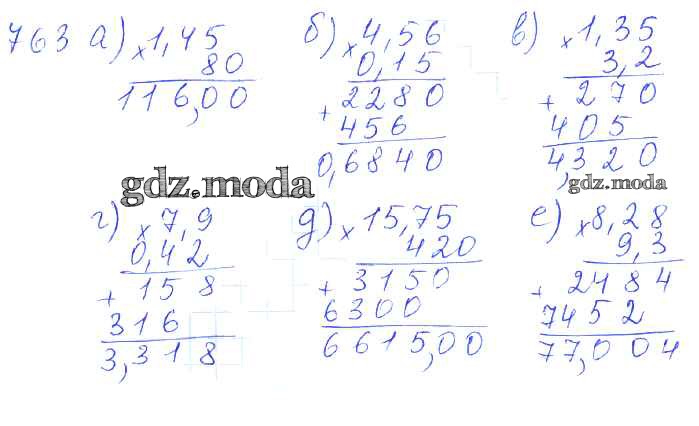 763 а) × 1,45 б) × 4,56 в) × 1,35
80 0,15 3,2
116,00 + 2280 + 270
456 405
0,6840 4,320
gdz.moda gdz.moda
г) × 7,9 д) × 15,75 е) × 8,28
0,42 420 9,3
+ 158 + 3150 + 2484
316 6300 7452
3,318 6615,00 77,004